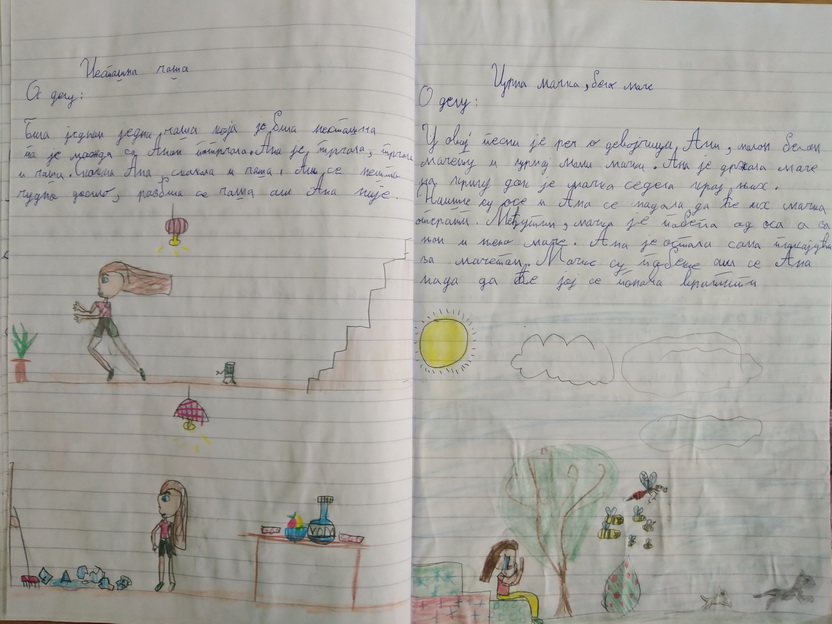 Несташна чаша
О делу:
Била једном једна чаша која је била несташна
па је можда са Аном потрчала. Ана је трчала, трчала
и чаша. Скочила Ана, скочила и чаша. Али се нешто
чудно десило, разбила се чаша али Ана није.
Црна мачка, бело маче
О делу:
У овој песми је реч о девојчици Ани, малом белом
мачету и црној мами мачки. Ана је држала маче
на крилу док је мачка седела крај њих.
Наишле су осе и Ана се надала да ће их мачка
отерати. Међутим, мачка је побегла од оса а за
њом и њено маче. Ана је остала сама
за мачетом. Мачке су побегле али се Ана
нада да ће јој се поново вратити